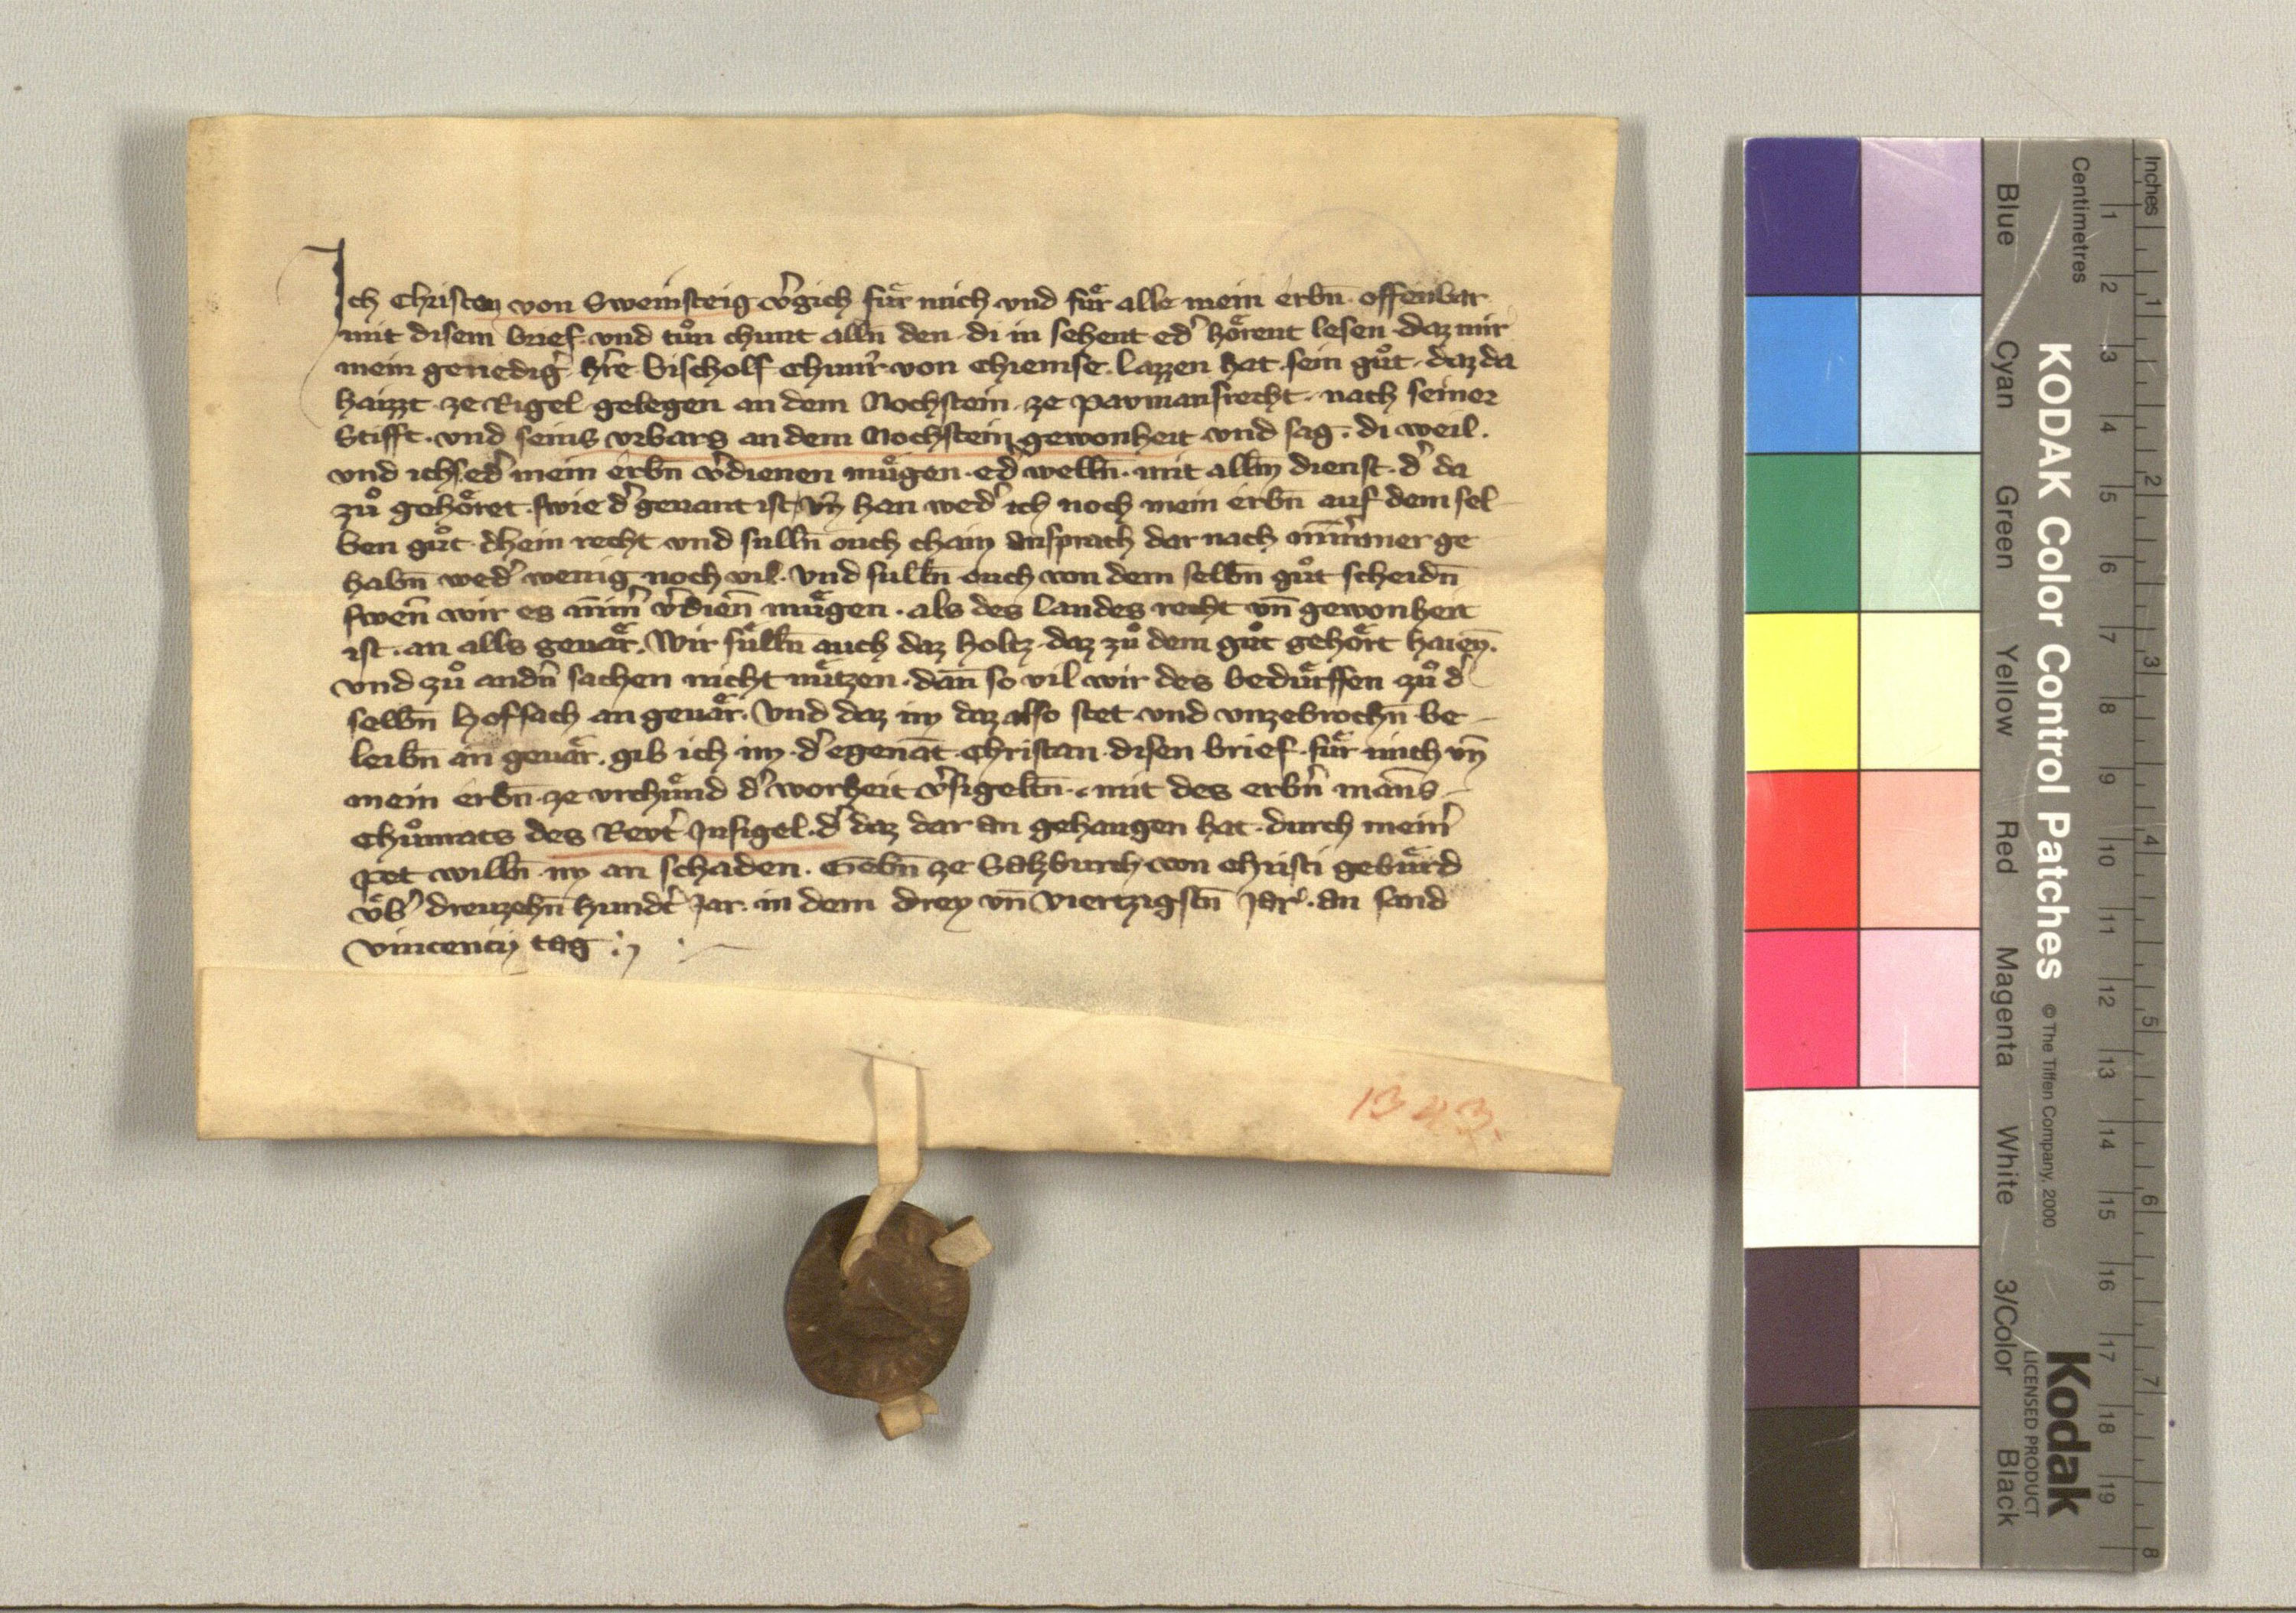 Ich Christan von Sweinsteig v̓gich fuͤr mich vnd fuͤr alle mein erbn̄ offenbar
mit disem brief vnd tuͦn chunt alln̄ den di in sehent ed̓ hoͤrent lesen daz mir
mein genedig̓ h̓re bischolf Chunr̓ von Chiemse lazzen hat sein guͦt daz da
haizzt ze Rigel gelegen an dem Nochstein ze pawmansrecht nach seiner
Stifft vnd seins vrbars an dem Nochstein gewonheit vnd sag. di weil.
vnd ichs ed̓ mein erbn̄ v̓dienen muͤgen ed̓ welln̄ mit allm̄ dienst d̓ da
zuͦ gehoͤret swie d̓ genant ist vn̄ han wed̓ ich noch mein erbn̄ auf dem sel
ben guͦt dhein recht vnd sulln̄ ouch chain ansprach dar nach nim̄mer ge
habn̄ wed̓ wenig noch vil. Vnd sulln̄ ouch von dem selbn̄ guͦt scheidn̄
swen̄ wir es nim̄ v̓dien̄ muͤgen. als des landes recht vn̄ gewonheit
ist. an alls geuaͤr. Wir suͤlln̄ auch daz holtz daz zuͦ dem guͦt gehoͤrt haien̄.
vnd zuͦ andn̓ sachen nicht nuͤtzen. dan̄ so vil wir des beduͤrffen zuͦ d̓
selbn̄ hofsach an geuaͤr. Vnd daz im daz also stet vnd vnzebrochn̄ be
leibn̄ an geuaͤr. gib ich im d̓ egenāt Christan disen brief fuͤr mich vn̄
mein erbn̄ ze vrchuͤnd d̓ worheit v̓sigeltn̄ mit des erbn̓ man̄s
Chuͦnrats des Reyt̓ Insigel. d̓ daz dar an gehangen hat durch mein̓
pet willn̄ im an schaden. Gebn̄ ze Salzburch von Christi gebuͤrd
vͤb̓ dreuzehn̄ hundt̓ Jar. in dem drey vn̄ viertzigstn̄ Jar̓. an sand
Vincencij tag
1343.
Inches
Centimetres
1 2 3 4 5 6 7 8
1 2 3 4 5 6 7 8 9 10 11 12 13 14 15 16 17 18 19
KODAK Color Control Patches
© The Tiffen Company, 2000
Kodak
LICENSED PRODUCT
Blue
Cyan
Green
Yellow
Red
Magenta
White
3/Color
Black